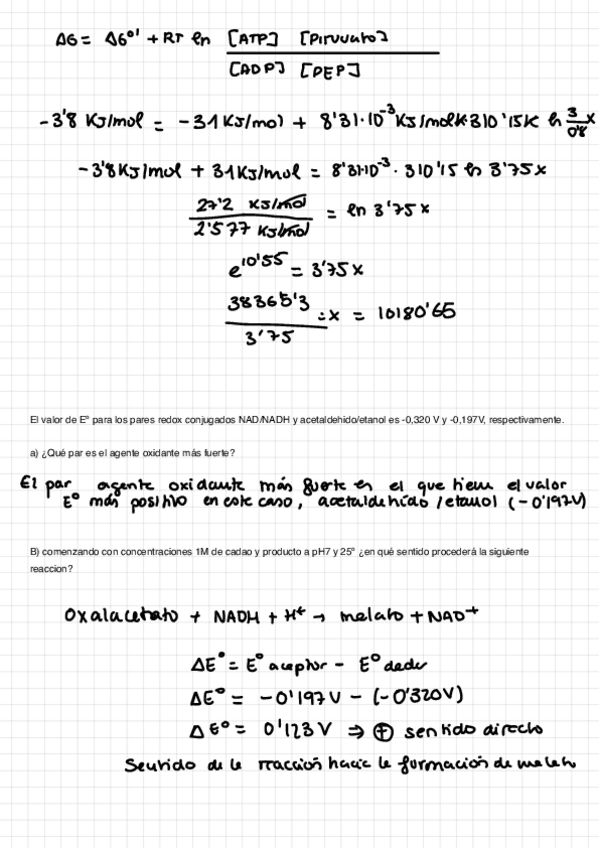 ΔG = ΔG°' + RT ln [ATP] [Piruvato]
[ADP] [PEP]
-3'8 KJ/mol = -31 KJ/mol + 8'31·10⁻³ KJ/molK·310'15K ln 3/0'8 x
-3'8KJ/mol + 31KJ/mol = 8'31·10⁻³ · 310'15 ln 3'75 x
27'2 KJ/mol
2'577 KJ/mol
= ln 3'75 x
e^10'55 = 3'75x
38365'3
3'75
= x = 10180'65
El valor de E° para los pares redox conjugados NAD/NADH y acetaldehido/etanol es -0,320 V y -0,197V, respectivamente.
a) ¿Qué par es el agente oxidante más fuerte?
El par agente oxidante más fuerte es el que tiene el valor
E° más positivo en este caso, acetaldehído/etanol (-0'197V)
B) comenzando con concentraciones 1M de cadao y producto a pH7 y 25° ¿en qué sentido procederá la siguiente
reaccion?
Oxalacetato + NADH + H⁺ → malato + NAD⁺
ΔE° = E° aceptor - E° dador
ΔE° = -0'197V - (-0'320V)
ΔE° = 0'123V ⇒ ⊕ sentido directo
Sentido de la reacción hacia la formación de malato